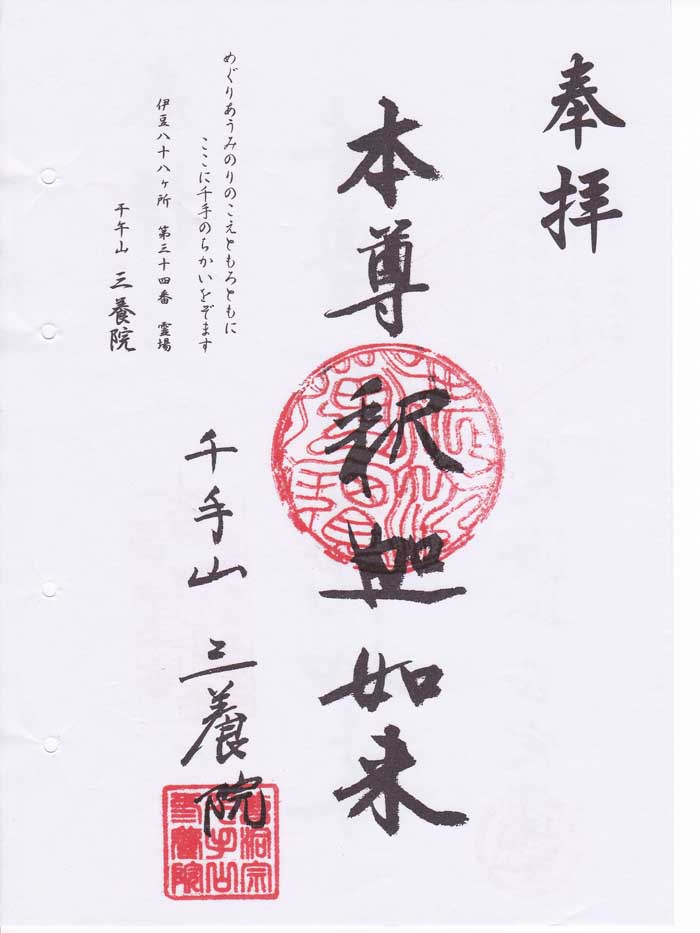 奉拝
本尊 釈迦如来
めぐりあうみのりのこえともろともに
ここに千手のちかいをぞます
伊豆八十八ヶ所 第三十四番 霊場
千午山 三養院
千手山 三養院
曹洞宗
千手山
三養院